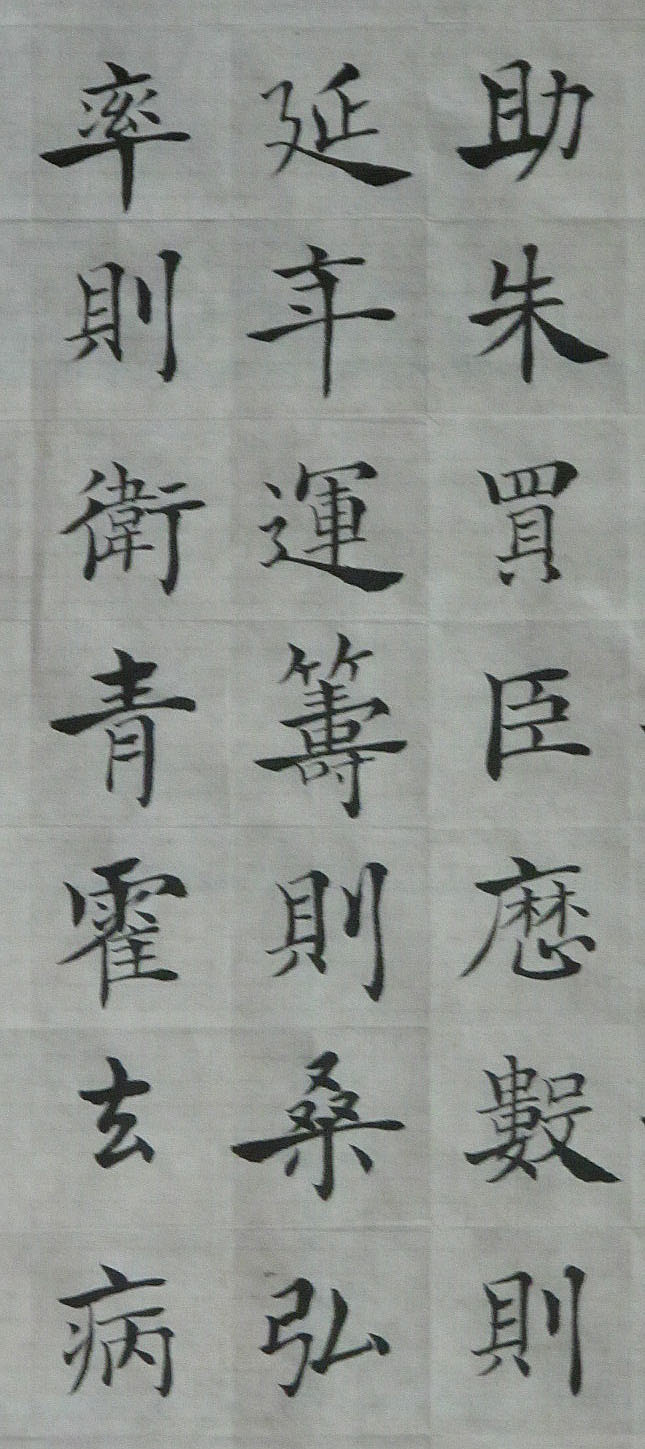 助朱買臣厯數則
延年運籌則桑弘
率則衛青霍去病